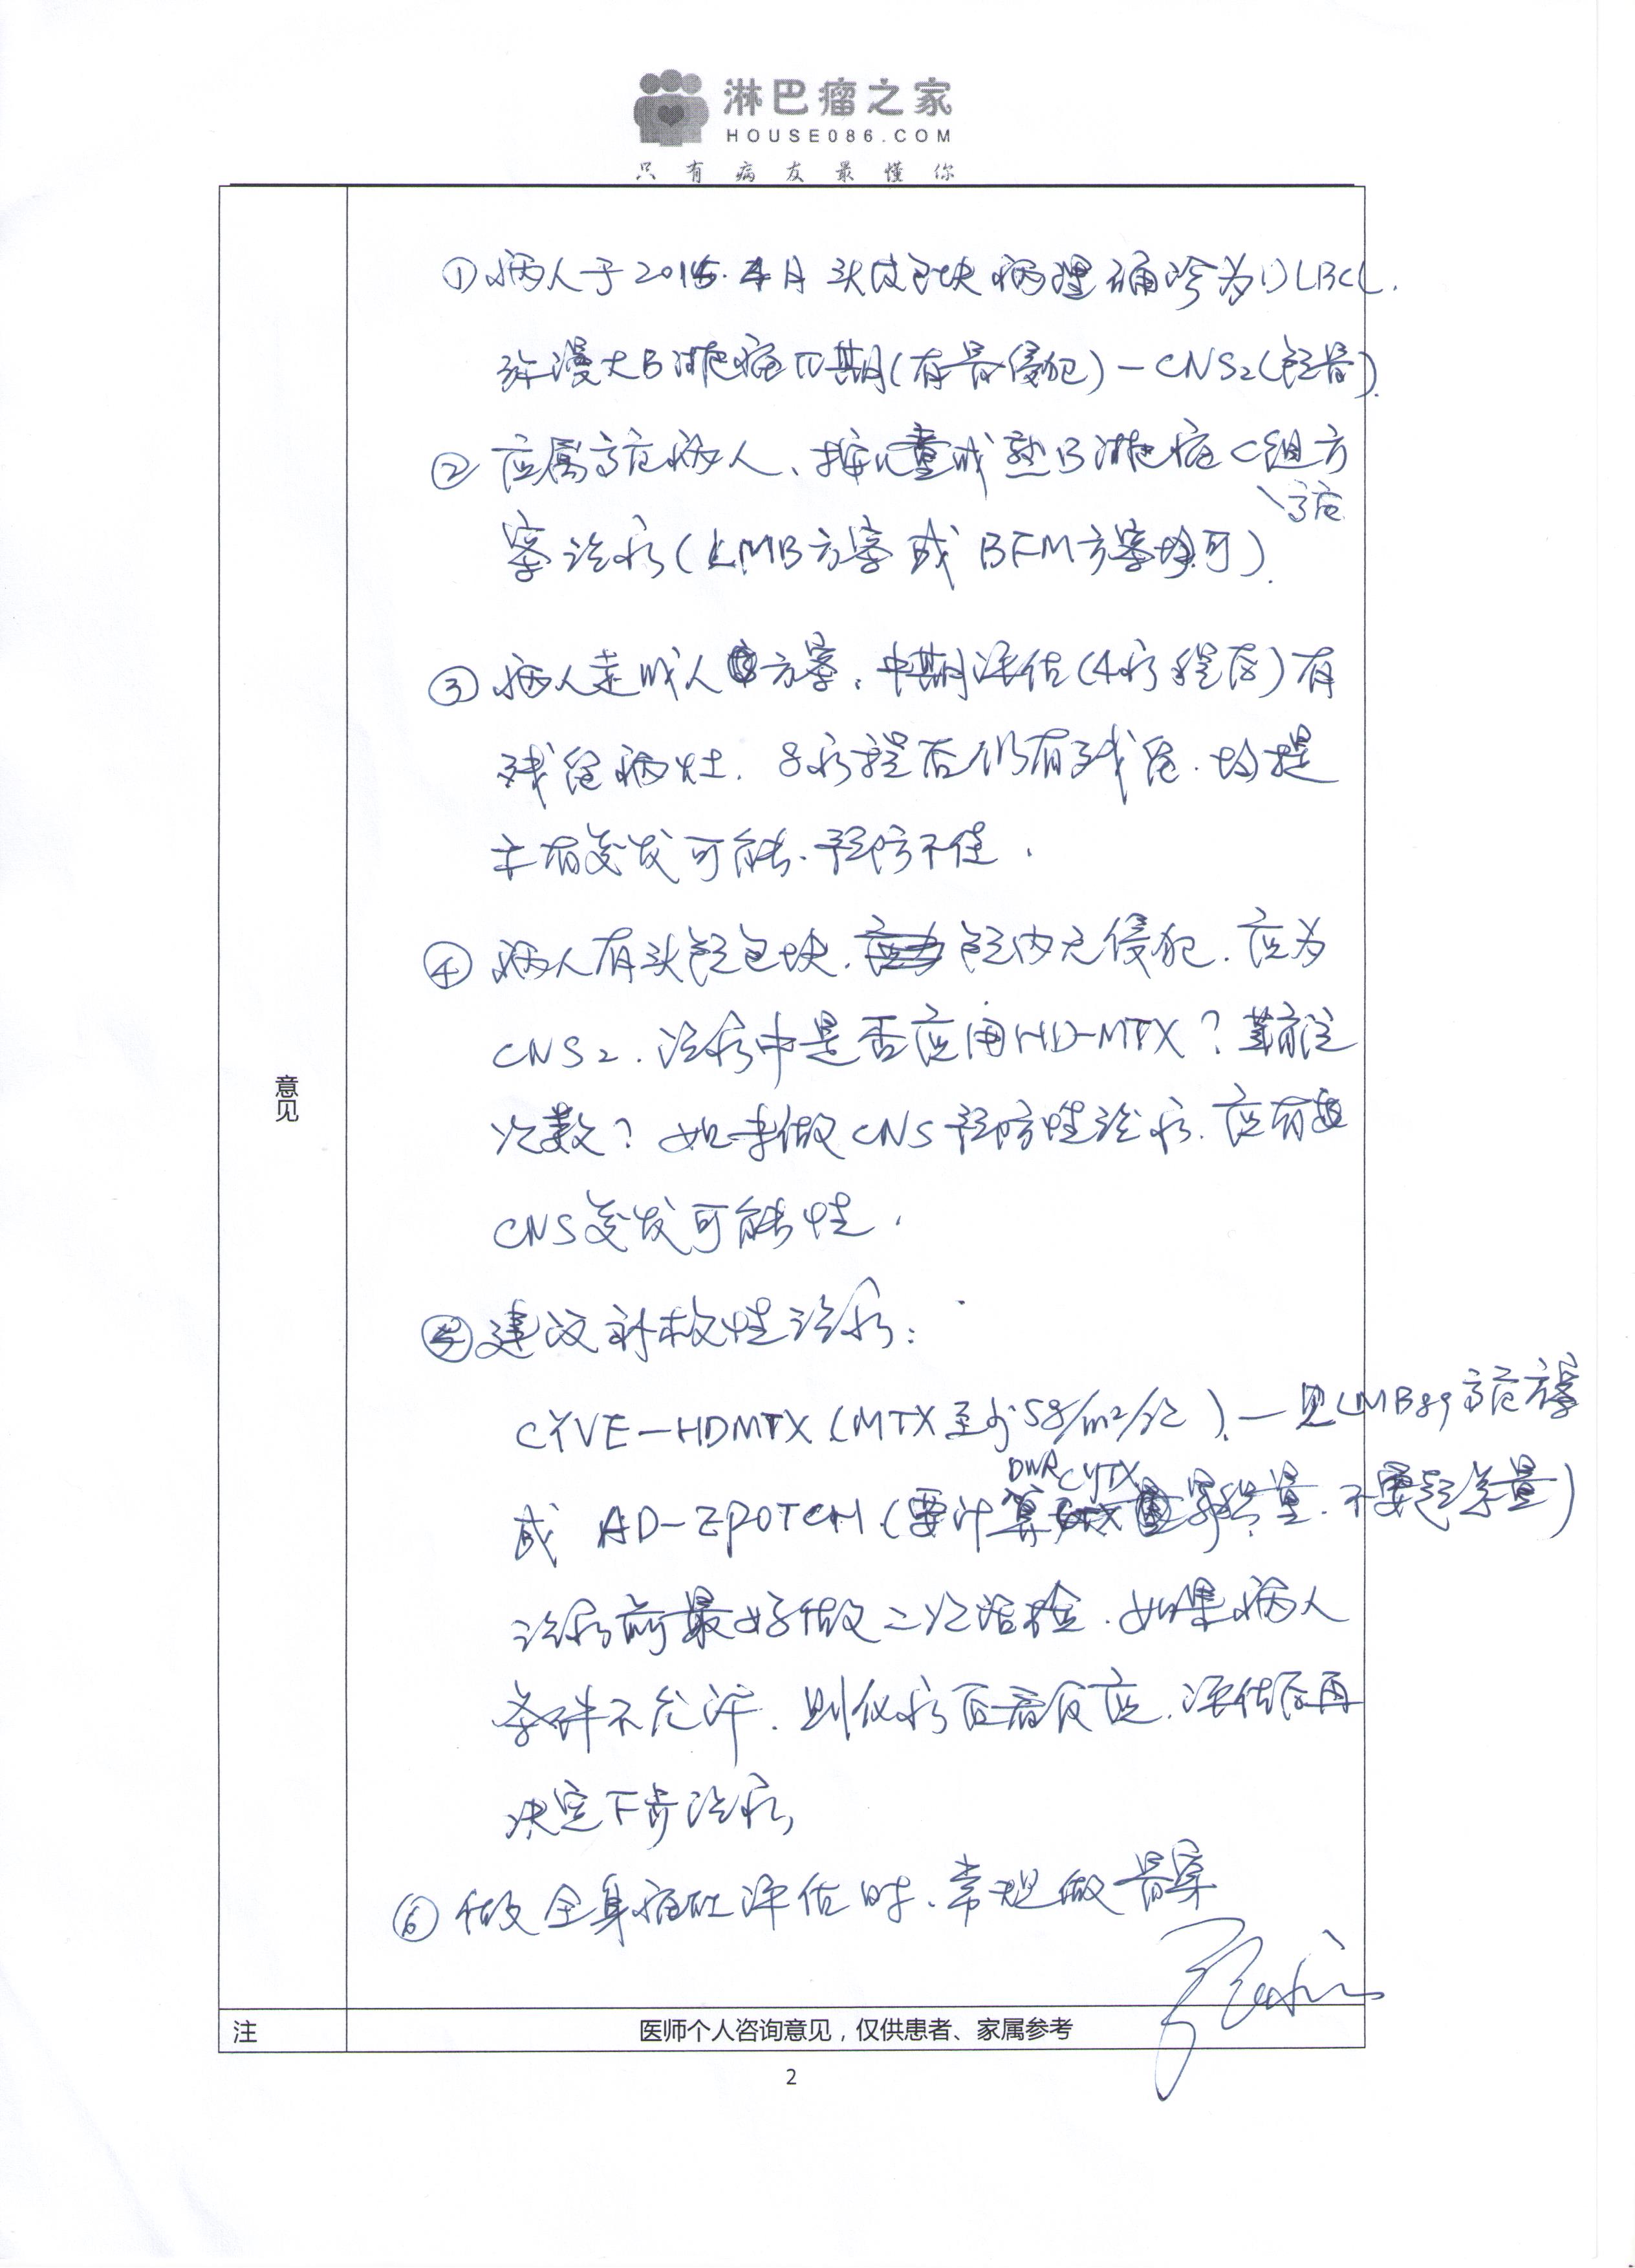 淋巴瘤之家
HOUSE086.COM
只有病友最懂你
① 病人于2015.4月头皮包块病理确诊为DLBCL.
弥漫大B淋巴瘤IV期(有骨侵犯)-CNS2(颅骨).
② 应属高危病人、按儿童成熟B淋巴瘤C组方
高危
案治疗(LMB方案或BFM方案均可).
③ 病人走成人方案,中期评估(4疗程后)有
残留病灶.8疗程后仍有残留.均提
示有复发可能.预防不佳.
④ 病人有头颅包块.颅内无侵犯.应为
CNS2.治疗中是否应用HD-MTX?鞘注
次数?如未做CNS预防性治疗.应有
CNS复发可能性.
⑤ 建议补救性治疗:
CYVE-HDMTX(MTX至少5g/m2/次).—见LMB89高危方案
DNR CYTX
或 AD-EPOTCH.(要计算累积量.不要超余量)
治疗前最好做二次活检.如果病人
条件不允许.则化疗后看反应.评估后再
决定下步治疗,
⑥ 做全身瘤灶评估时、常规做骨穿
意见
注
医师个人咨询意见,仅供患者、家属参考
2